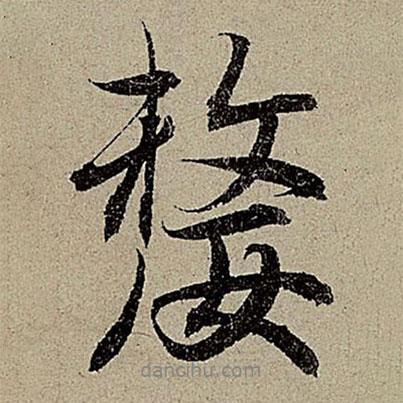 嫠
dancihu.com